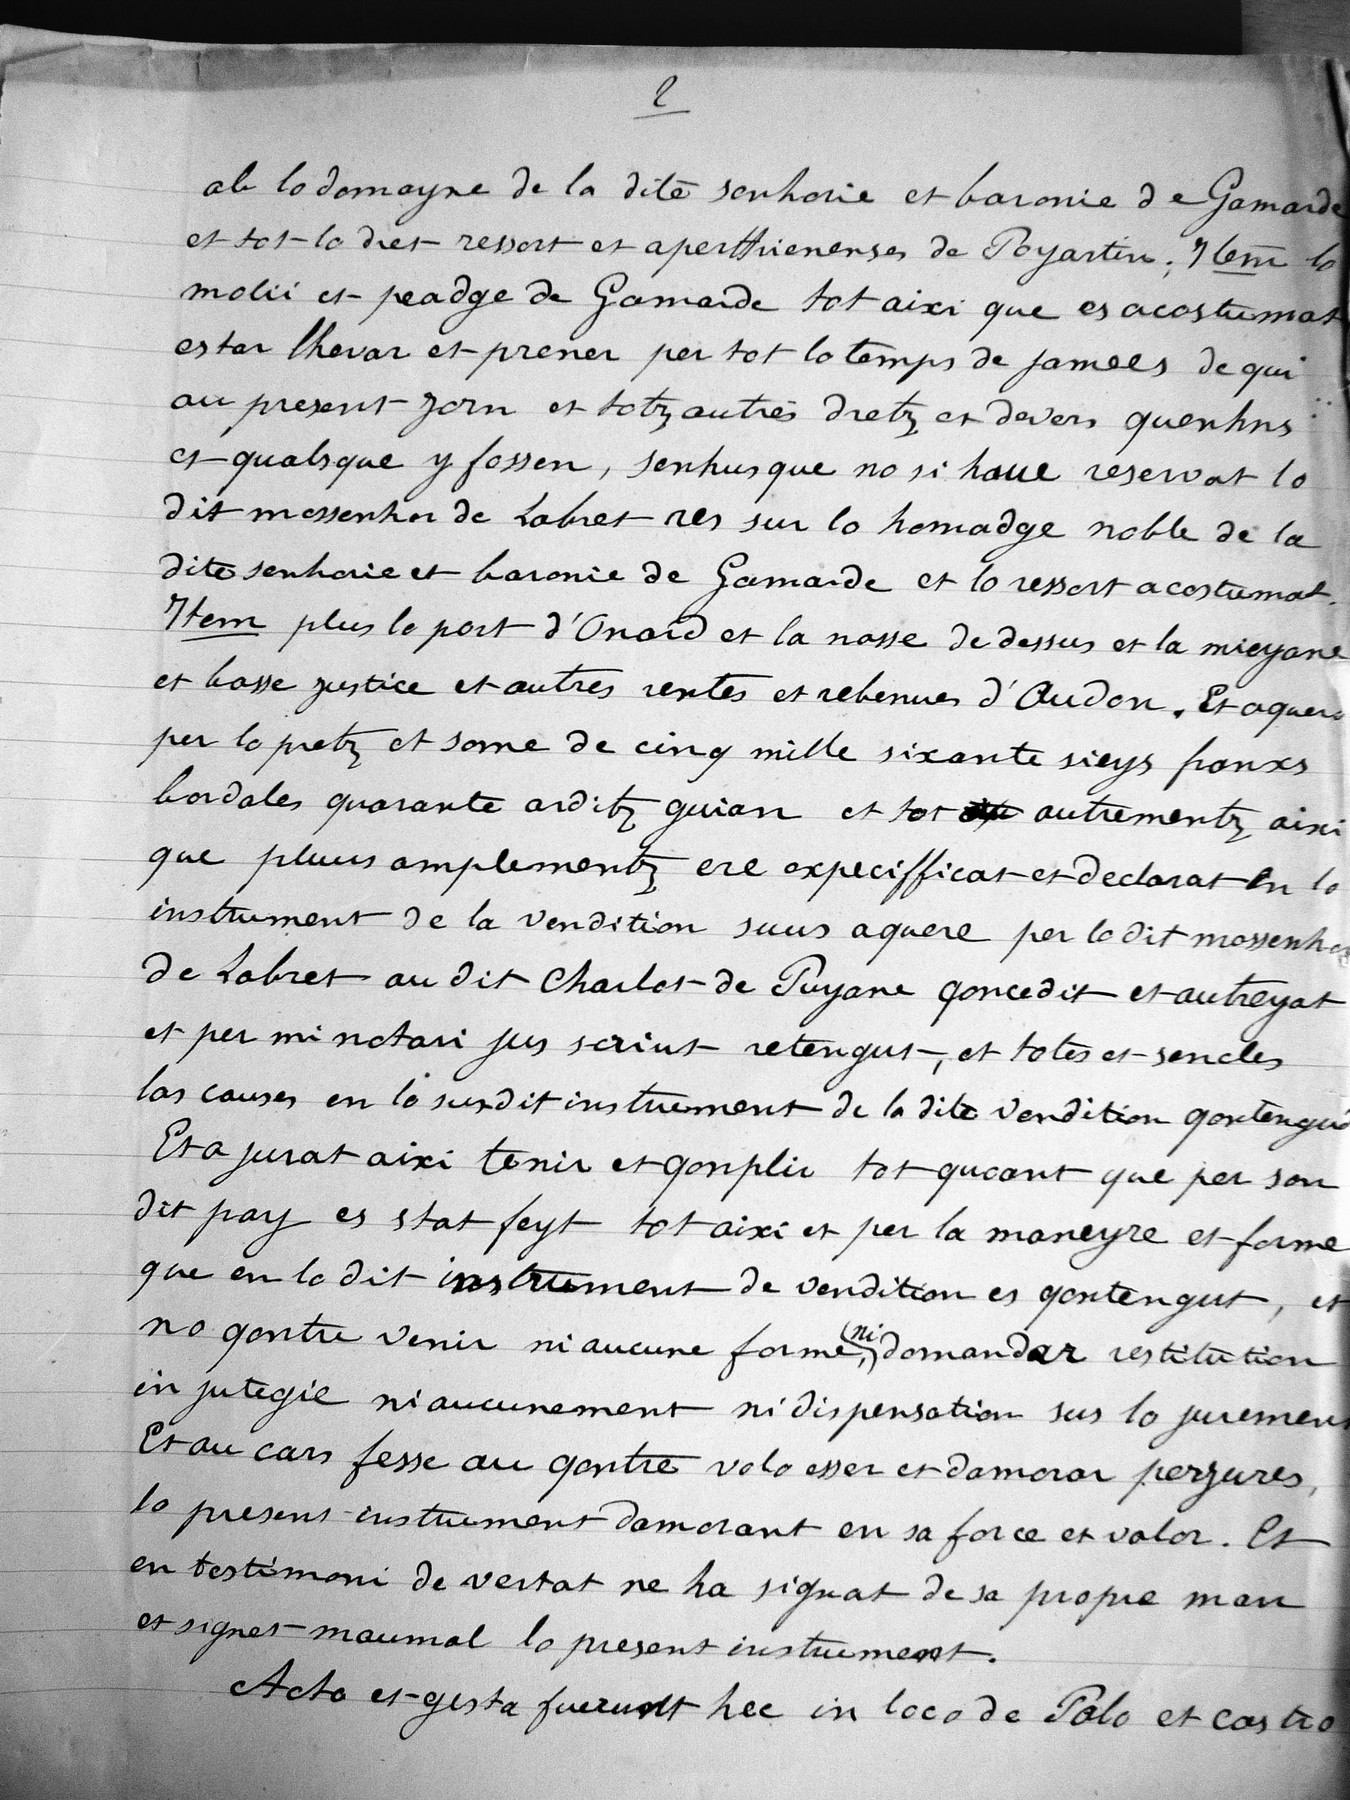 2
ab lo domayne de la dite senhorie et baronie de Gamarde
et tot lo dret ressort et aperthienenses de Poyartin. Item lo
molii et peadge de Gamarde tot aixi que es acostumat
estar lhevar et prener per tot lo temps de jamees de qui
au present jorn et totz autres dretz et devers quenhns
et qualsque y fossen, senhus que no si haue reservat lo
dit mossenhor de Labret res sur lo homadge noble de la
dite senhorie et baronie de Gamarde et lo ressort acostumat.
Item plus lo port d'Onard et la nasse de dessus et la mieyane
et basse justice et autres rentes et rebenues d'Audon. Et aquero
per lo pretz et some de cinq mille sixante sieys franxs
bordales quarante arditz guian et tot autrementz aixi
que pluus amplementz ere expecifficat et declarat en lo
instrument de la vendition suus aquere per lo dit mossenhor
de Labret au dit Charlot de Puyane qoncedit et autreyat
et per mi notari jus scriut retengut, et totes et sencles
las causes en lo susdit instrument de la dite vendition qontengud
Et a jurat aixi tenir et qonplir tot quoant que per son
dit pay es stat feyt tot aixi et per la maneyre et forme
que en lo dit instrument de vendition es qontengut, et
no qontre venir ni aucune forme, (ni) domandar restitution
in jntegie ni aucunement ni dispensation sus lo jurement
Et au cars fesse au qontre volo esser et damorar perjures,
lo present instrument damorant en sa force et valor. Et
en testimoni de vertat ne ha signat de sa propre man
et signet maumal lo present instrument.
Acta et gesta fuerunt hec in loco de Palo et castro